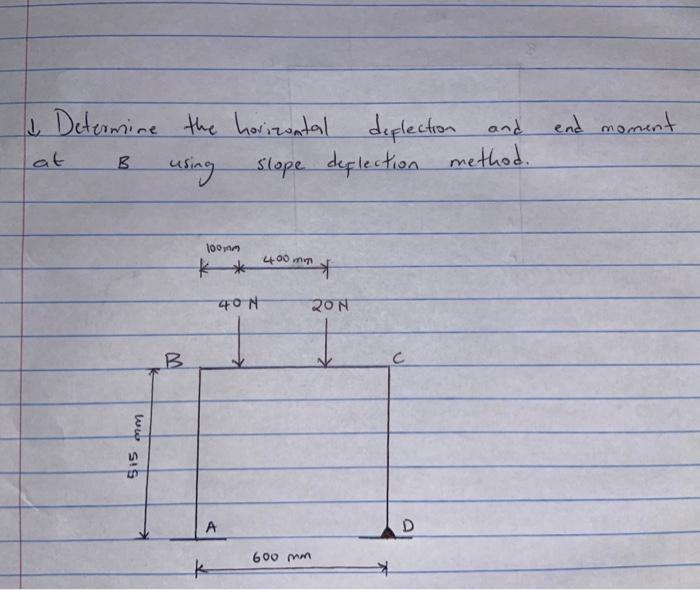 ↓ Determine the horizontal deflection and end moment
at B using slope deflection method.
100mm
400 mm
40 N
20 N
B
C
515 mm
A
D
600 mm